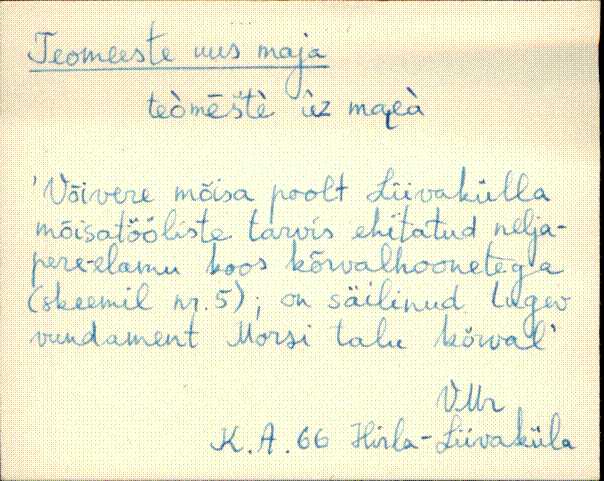 Teomeeste uus maja
teòmēštè ūz maɪ̯à
'Võivere mõisa poolt Liivakülla
mõisatööliste tarvis ehitatud nelja-
pere-elamu koos kõrvalhoonetega
(skeemil nr. 5); on säilinud tugev
vundament Morsi talu kõrval'
VMr
K. A. 66 Hirla-Liivaküla